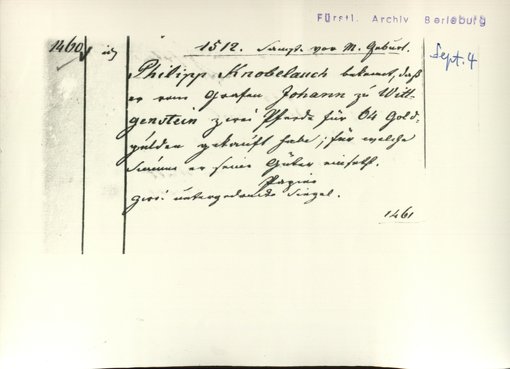 Fürstl. Archiv Berleburg
1460
1512. Sampt. vor M. Geburt.
Sept. 4
Philipp Knobelauch bekennt, daß
er vom Grafen Johann zu Witt-
genstein zwei Pferde für 64 Gold-
gulden gekauft habe, für welche
Summe er seine Güter einsetzt.
Papier
untergedrucktes Siegel.
1461